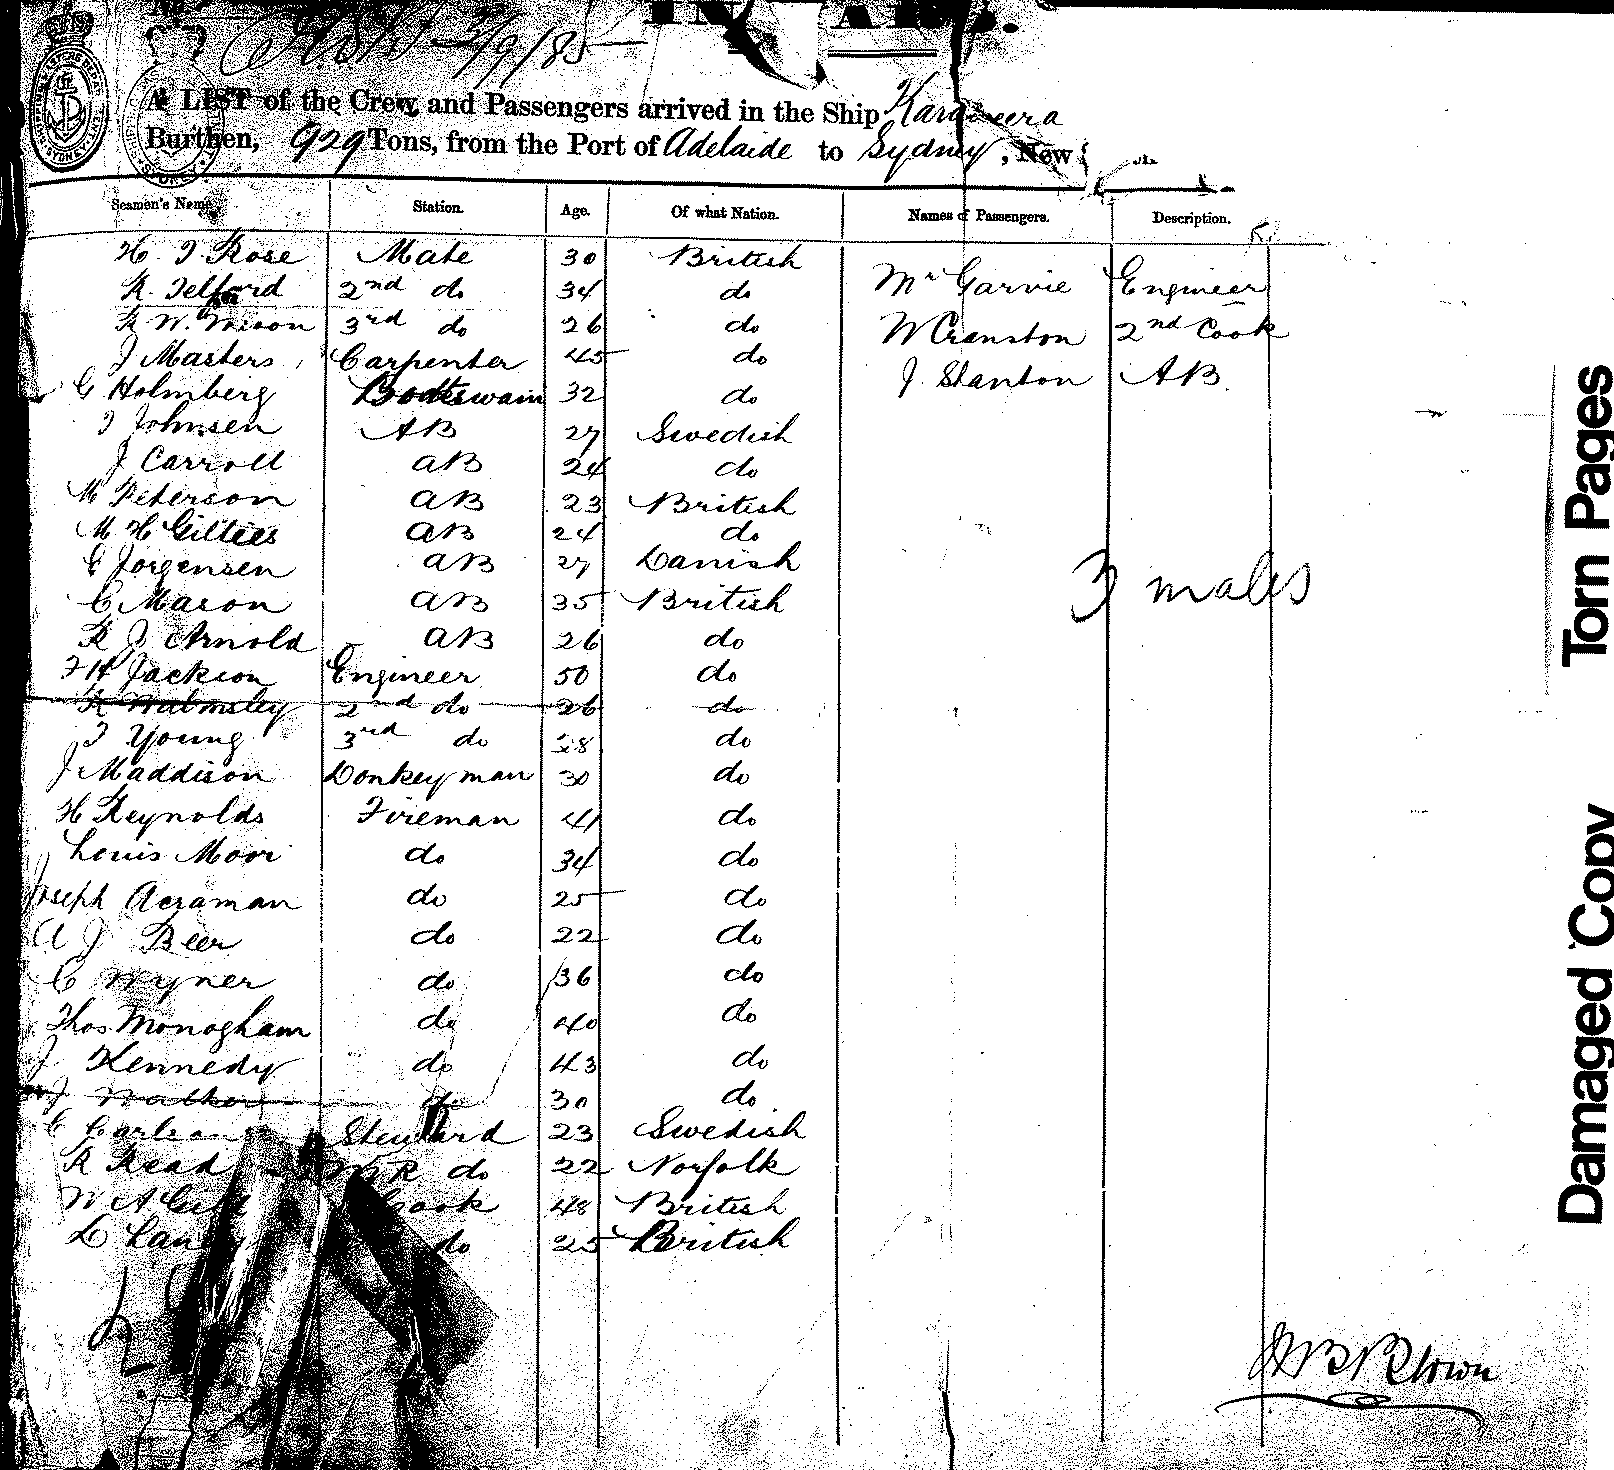 2/9/85
A LIST of the Crew and Passengers arrived in the Ship Karameera
Burthen, 929 Tons, from the Port of Adelaide to Sydney, New
Seamen's Name Station. Age. Of what Nation. Names of Passengers. Description.
H. J Rose Mate 30 British Mr Garvie Engineer
R. Telford 2nd do 34 do W Cranston 2nd Cook
R W. 3rd do 26 do J. Stanton AB.
J Masters Carpenter 45 do
G Holmberg Boatswain 32 do
J Johnsen AB 27 Swedish
J Carroll AB 24 do
M Peterson AB 23 British
M H Gillees AB 24 do
C Jorgensen AB 27 Danish
C Mason AB 35 British
R J Arnold AB 26 do
F H Jackson Engineer 50 do
R Walmsley 2nd do 26 do
J Young 3rd do 28 do
J Maddison Donkeyman 30 do
H Reynolds Fireman 41 do
Louis Moor do 34 do
Joseph Acraman do 25 do
A J Beer do 22 do
C Wyner do 36 do
Thos Monogham do 40 do
J Kennedy do 43 do
J Walker do 30 do
C Carlson Steward 23 Swedish
R Read do 22 Norfolk
W A Cook 48 British
L do 25 British
3 males
Brown
Torn Pages
Damaged Copy